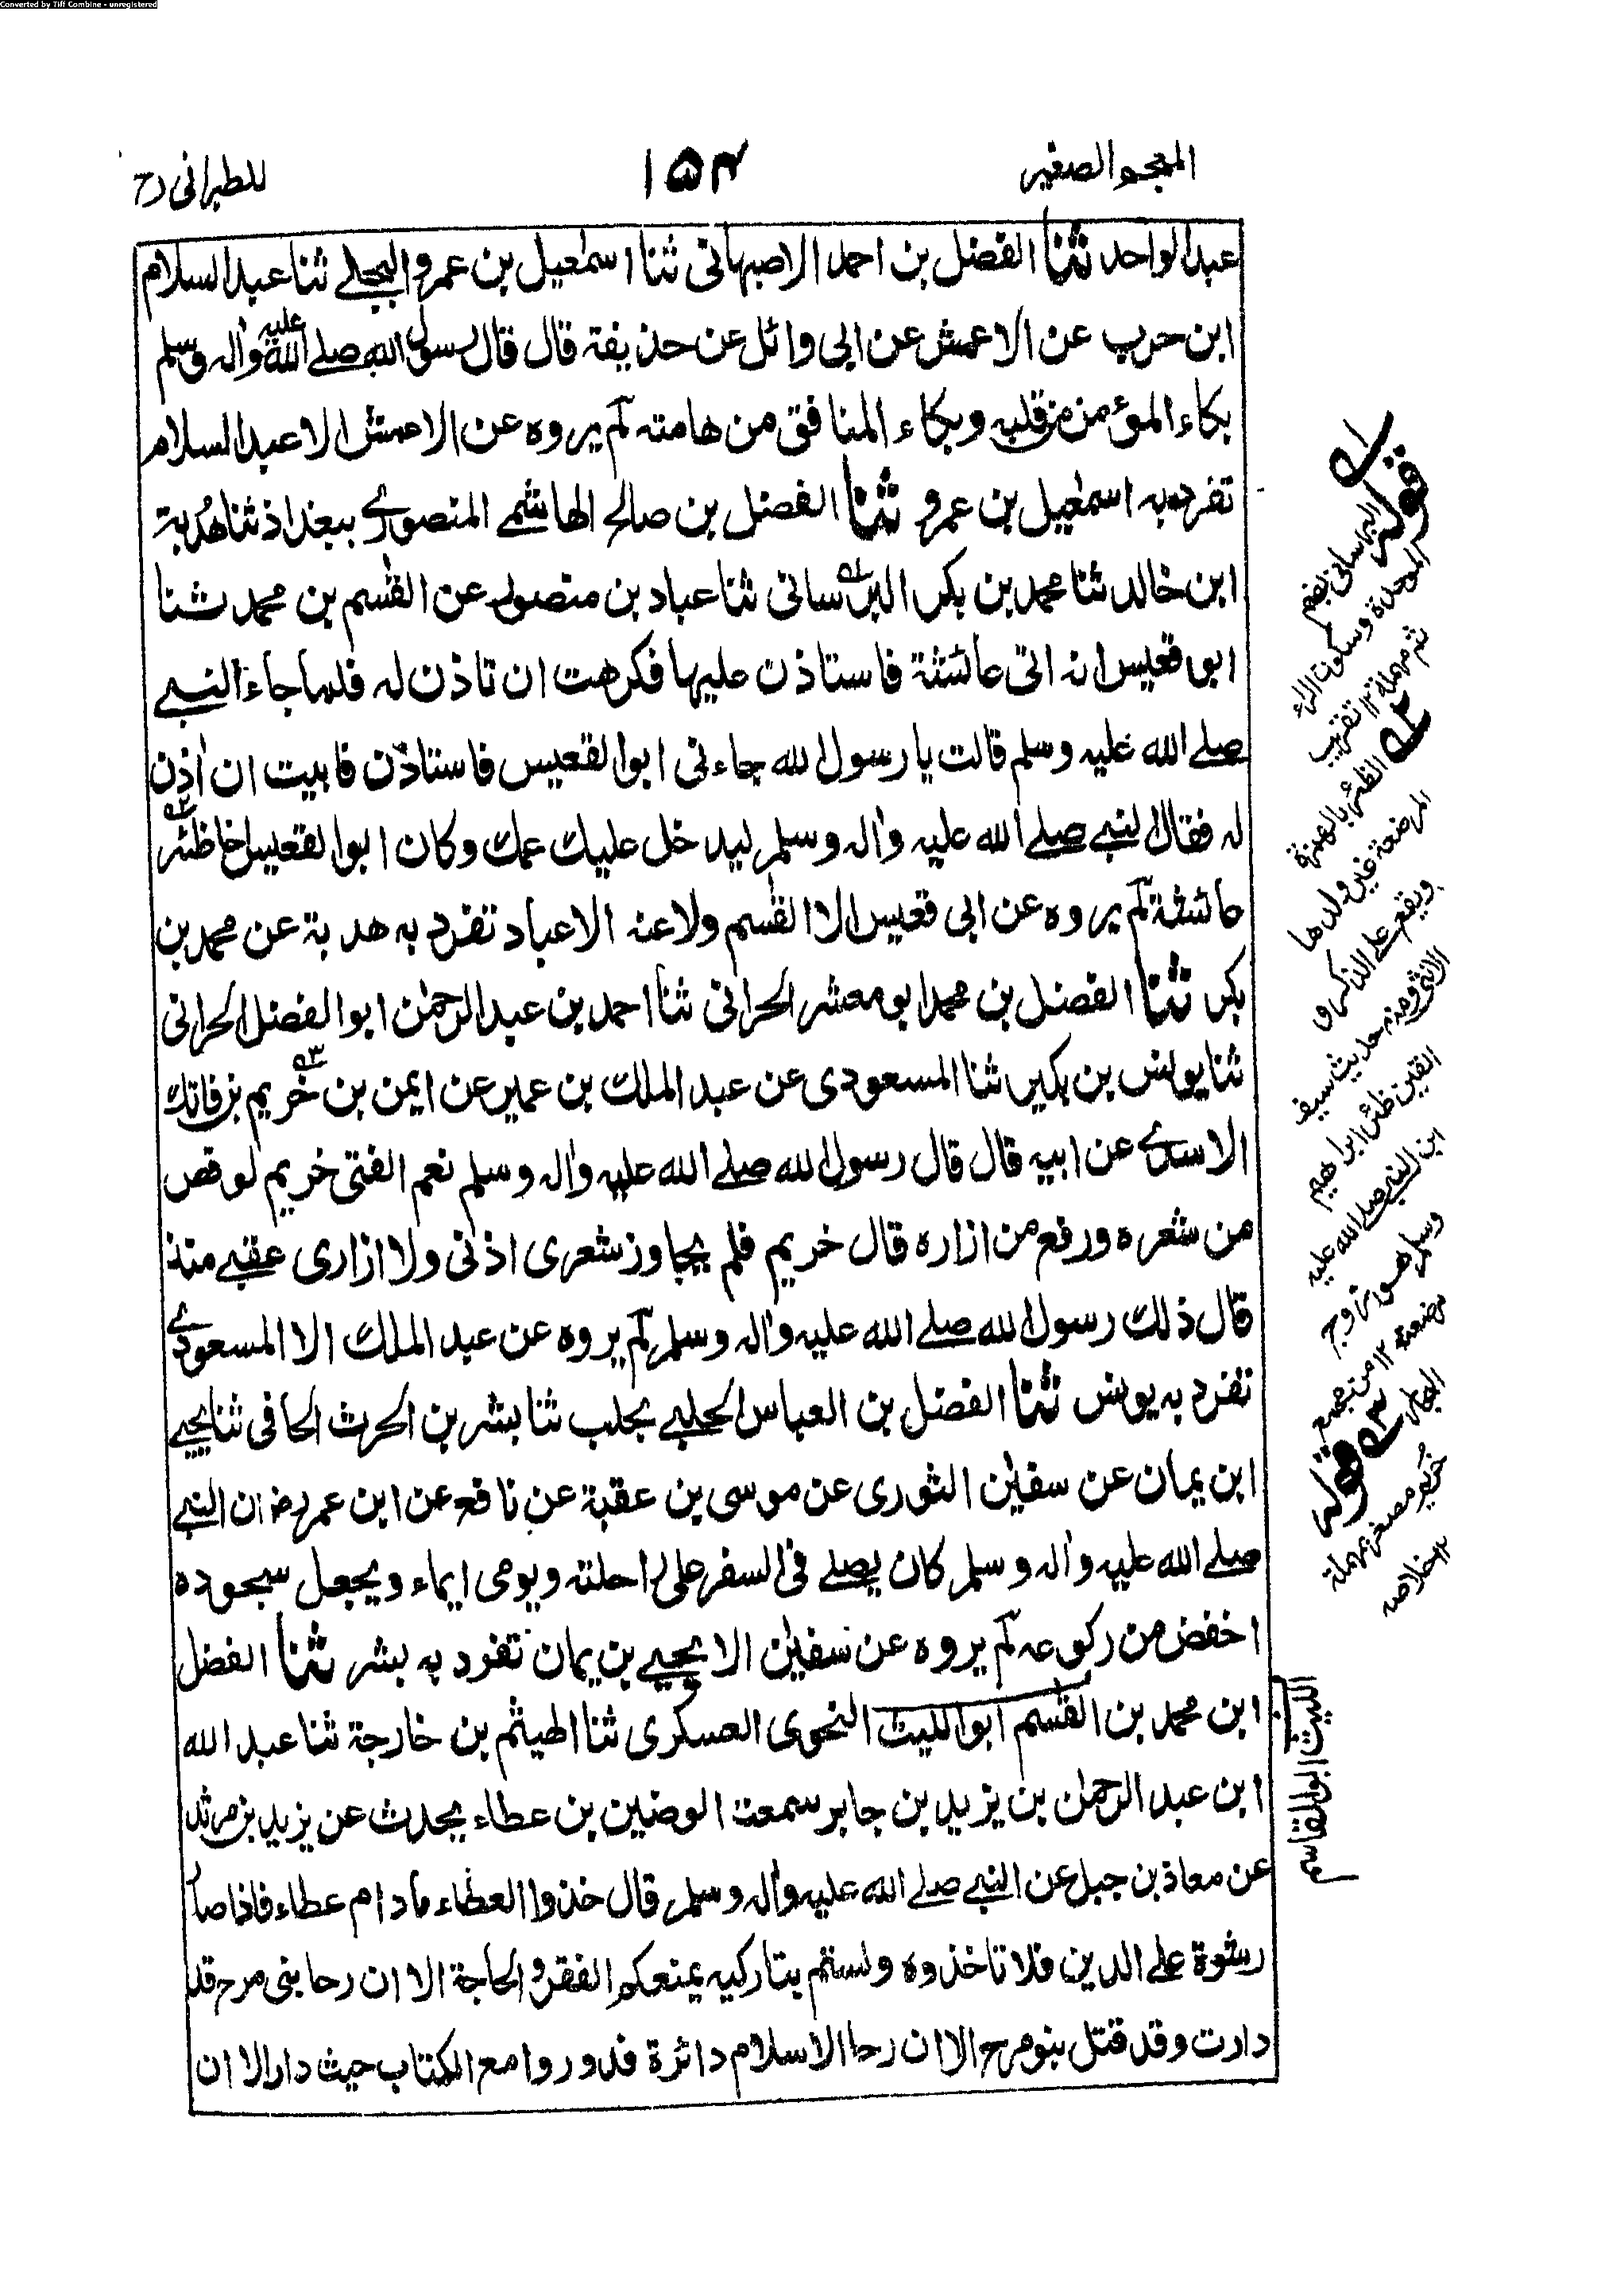 Converted by Tiff Combine - unregistered
المعجم الصغير
١٥٤
للطبرانی رح
عبد الواحد ثنا الفضل بن احمد الاصبهانی ثنا اسمٰعيل بن عمرو البجلے ثنا عبد السلام
ابن حرب عن الاعمش عن ابی وائل عن حذيفة قال قال رسول الله صلے الله عليه واٰله وسلم
بكاء المؤمن من قلبه وبكاء المنافق من هامته لم يروه عن الاعمش الا عبد السلام
تفرد به اسمٰعيل بن عمرو ثنا الفضل بن صالح الهاشمے المنصوری ببغداذ ثنا هُدبة
ابن خالد ثنا محمد بن بكر البرسانی ثنا عباد بن منصور عن القٰسم بن محمد ثنا
ابو قعيس انه اتی عائشة فاستاذن عليها فكرهت ان تاذن له فلما جاء النبے
صلے الله عليه وسلم قالت يا رسول الله جاءنی ابو القعيس فاستاذن فابيت ان اٰذن
له فقال النبے صلے الله عليه واٰله وسلم ليدخل عليك عمك وكان ابو القعيس اخا ظئر
عائشة لم يروه عن ابی قعيس الا القٰسم ولا عنه الا عباد تفرد به هدبة عن محمد بن
بكر ثنا الفضل بن محمد ابو معشر الحرانی ثنا احمد بن عبد الرحمٰن ابو الفضل الحرانی
ثنا يونس بن بكير ثنا المسعودی عن عبد الملك بن عمير عن ايمن بن خريم بن فاتك
الاسدی عن ابيه قال قال رسول الله صلے الله عليه واٰله وسلم نعم الفتی خريم لو قص
من شعره ورفع من ازاره قال خريم فلم يجاوز شعری اذنی ولا ازاری عقبے منذ
قال ذلك رسول الله صلے الله عليه واٰله وسلم لم يروه عن عبد الملك الا المسعودی
تفرد به يونس ثنا الفضل بن العباس الحلبے بحلب ثنا بشر بن الحرث الحافی ثنا يحيے
ابن يمان عن سفيٰن الثوری عن موسی بن عقبة عن نافع عن ابن عمر رض ان النبے
صلے الله عليه واٰله وسلم كان يصلے فی السفر علی راحلته ويومی ايماء ويجعل سجوده
اخفض من ركوعه لم يروه عن سفيٰن الا يحيے بن يمان تفرد به بشر ثنا الفضل
ابن محمد بن القٰسم ابو الليث النحوی العسكری ثنا الهيثم بن خارجة ثنا عبد الله
ابن عبد الرحمٰن بن يزيد بن جابر سمعت الوضين بن عطاء يحدث عن يزيد بن مرثد
عن معاذ بن جبل عن النبے صلے الله عليه واٰله وسلم قال خذوا العطاء ما دام عطاء فاذا صار
رشوة علے الدين فلا تاخذوه ولستم بتاركيه يمنعكم الفقر والحاجة الا ان رحا بنی مرح قد
دارت وقد قتل بنو مرح الا ان رحا الاسلام دائرة فدوروا مع الكتاب حيث دار الا ان
له قوله
البرسانی بضم
الموحدة وسكون الراء
ثم مهملة ١٢ تقريب
الظئر بالهمزة
المرضعة غير ولدها
ويقع علے الذكر و
الانثی ومنه حديث سيف
القين ظئر ابراهيم
ابن النبے صلے الله عليه
وسلم هو زوج
مرضعة ١٢ من مجمع
البحار
قوله
خريم مصغر بمهملة
١٢ خلاصه
الليث ابو القاسم